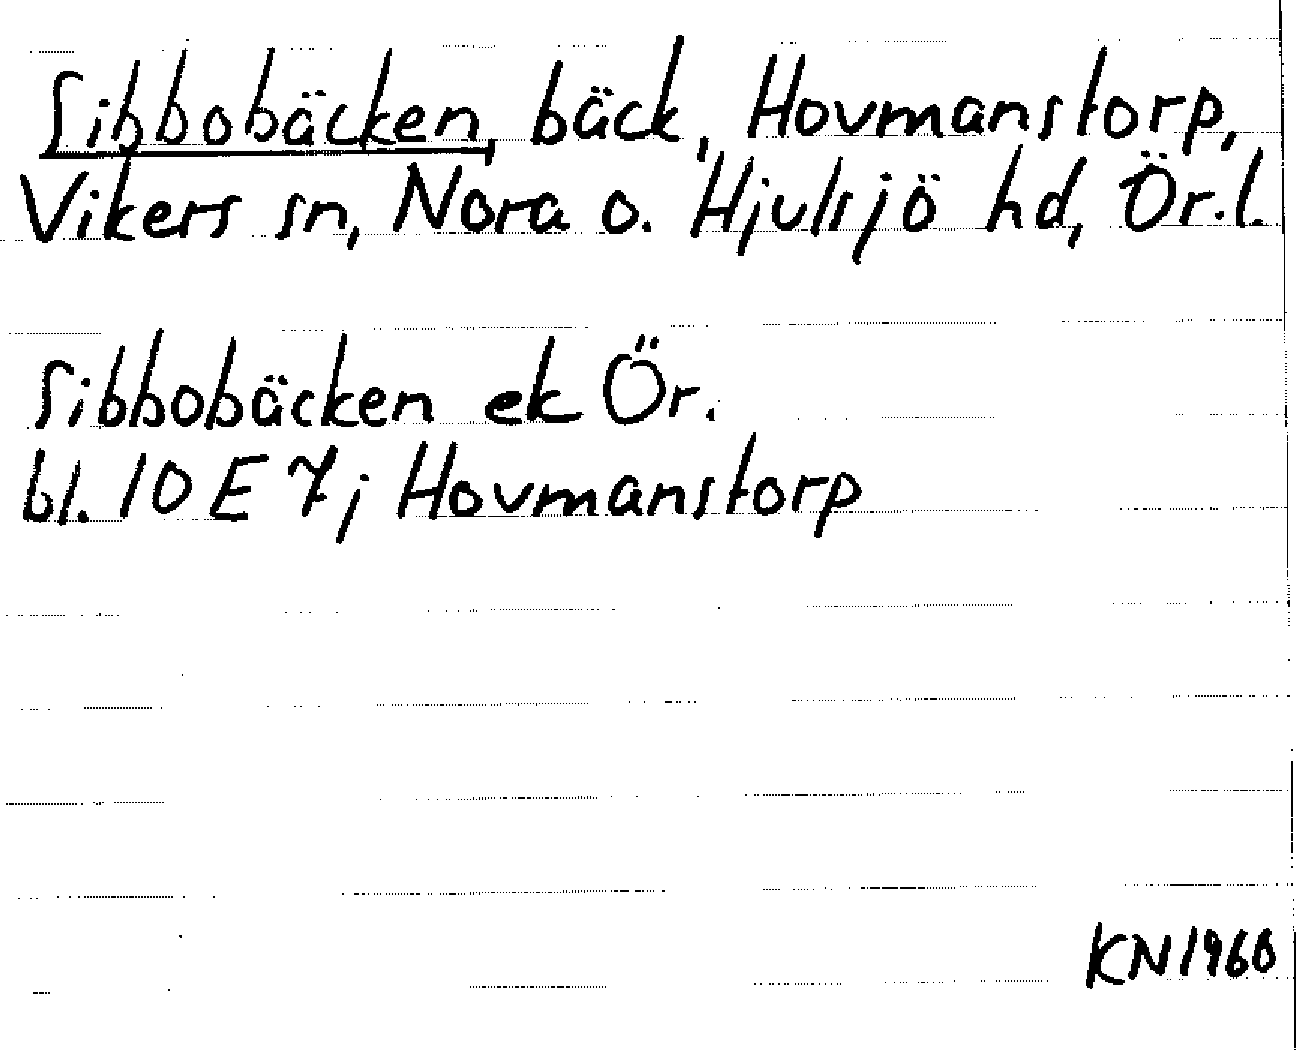 Sibbobäcken, bäck, Hovmanstorp,
Vikers sn, Nora o. Hjulsjö hd, Ör.l.
Sibbobäcken ek Ör.
bl. 10 E 7j Hovmanstorp
KN 1960